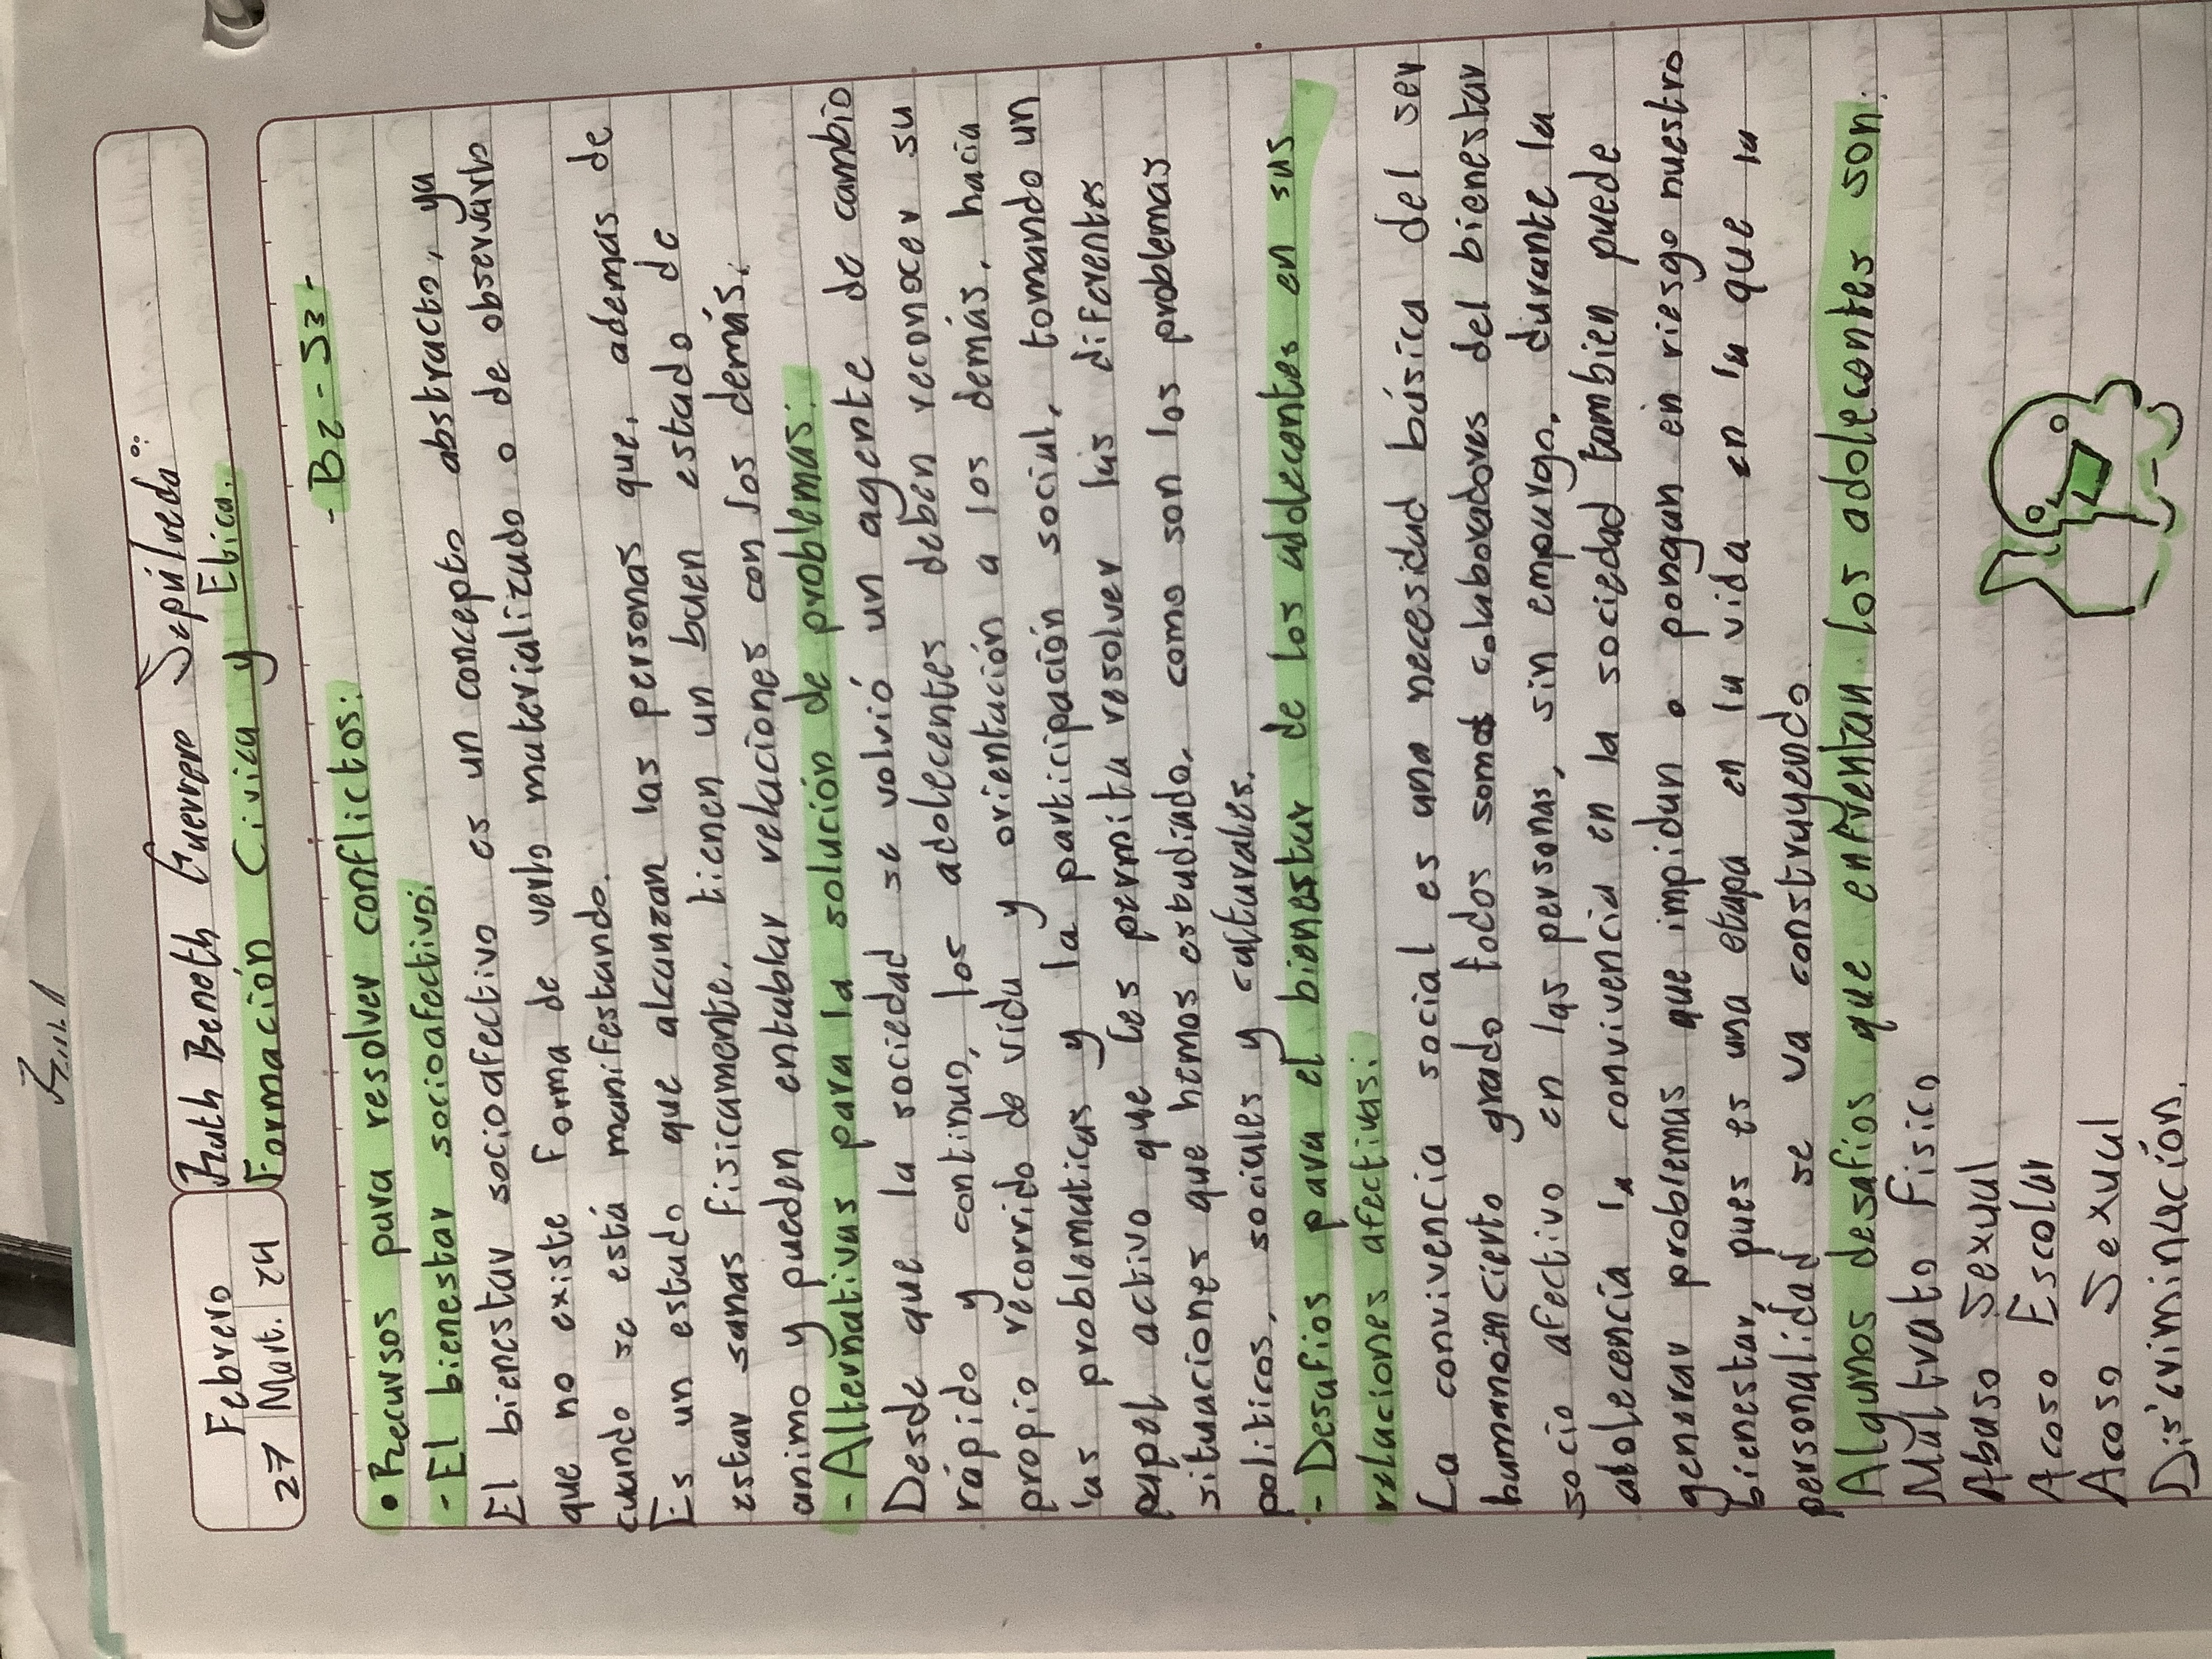 Febrero
27 Mart. 24
Ruth Beneth Guerrero Sepúlveda
Formación Civica y Etica.
- B2 - S3 -
• Recursos para resolver conflictos:
- El bienestar socioafectivo:
El bienestar socioafectivo es un concepto abstracto, ya
que no existe forma de verlo materializado o de observarlo
cuando se está manifestando.
Es un estado que alcanzan las personas que, ademas de
estar sanas fisicamente, tienen un buen estado de
animo y pueden entablar relaciones con los demás.
- Alternativas para la solución de problemas:
Desde que la sociedad se volvió un agente de cambio
rápido y continuo, los adolecentes deben reconocer su
propio recorrido de vida y orientación a los demás, hacia
las problematicas y la participación social, tomando un
papel activo que les permita resolver las diferentes
situaciones que hemos estudiado, como son los problemas
politicos, sociales y culturales.
- Desafios para el bienestar de los adolecentes en sus
relaciones afectivas:
La convivencia social es una necesidad básica del ser
humano cierto grado todos somos colaboradores del bienestar
socio afectivo en las personas, sin empargo, durante la
adolecencia la convivencia en la sociedad tambien puede
generar problemas que impidan o pongan en riesgo nuestro
bienestar, pues es una etapa en la vida en la que la
personalidad se va construyendo.
Algunos desafios que enfrentan los adolecentes son:
Maltrato Fisico
Abuso Sexual
Acoso Escolar
Acoso Sexual
Discriminación.